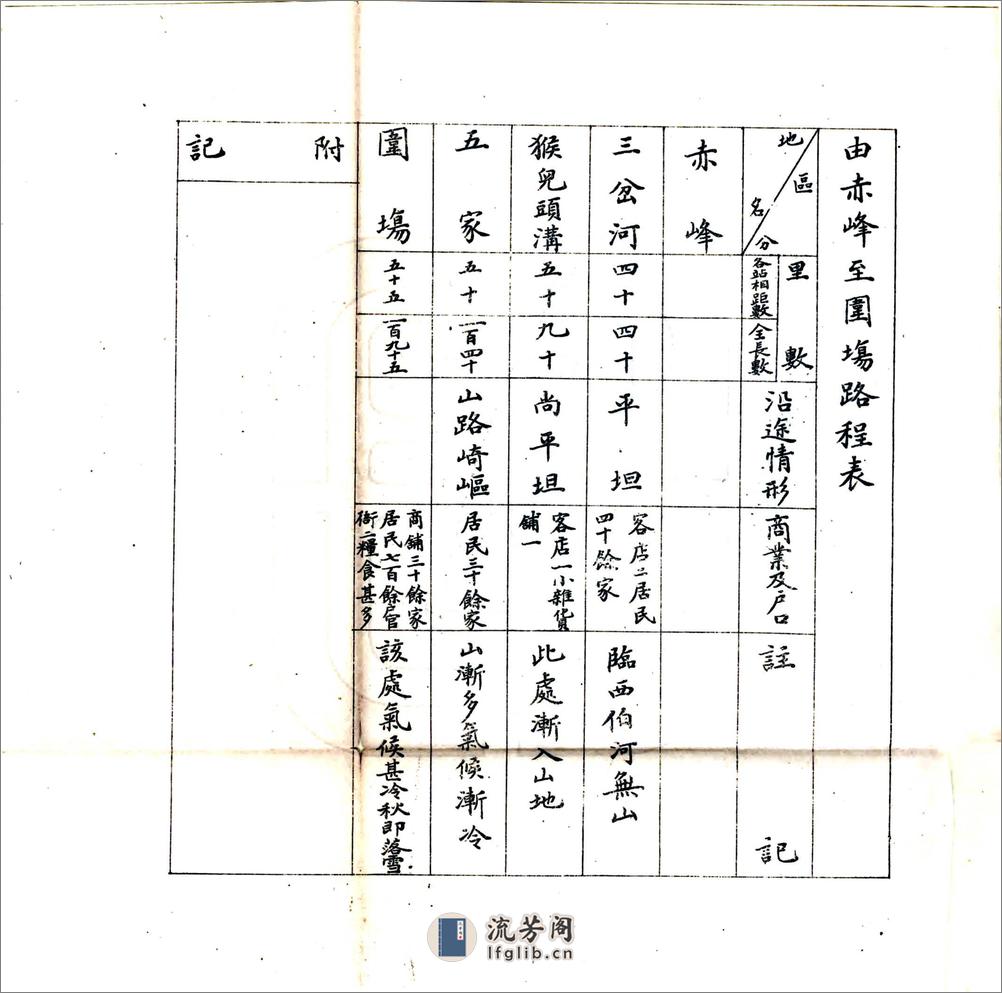 由赤峰至圍塲路程表
地區
名分
里數
各站相距數
全長數
沿途情形
商業及戶口
註記
赤峰
三岔河
四十
四十
平坦
客店二居民
四十餘家
臨西伯河無山
猴兒頭溝
五十
九十
尚平坦
客店一小雜貨
舖一
此處漸入山地
五家
五十
一百四十
山路崎嶇
居民三十餘家
山漸多氣候漸冷
圍塲
五十五
一百九十五
商舖三十餘家
居民七百餘戶官
衙二糧食甚多
該處氣候甚冷秋即落雪
附記
流芳阁
lfglib.cn